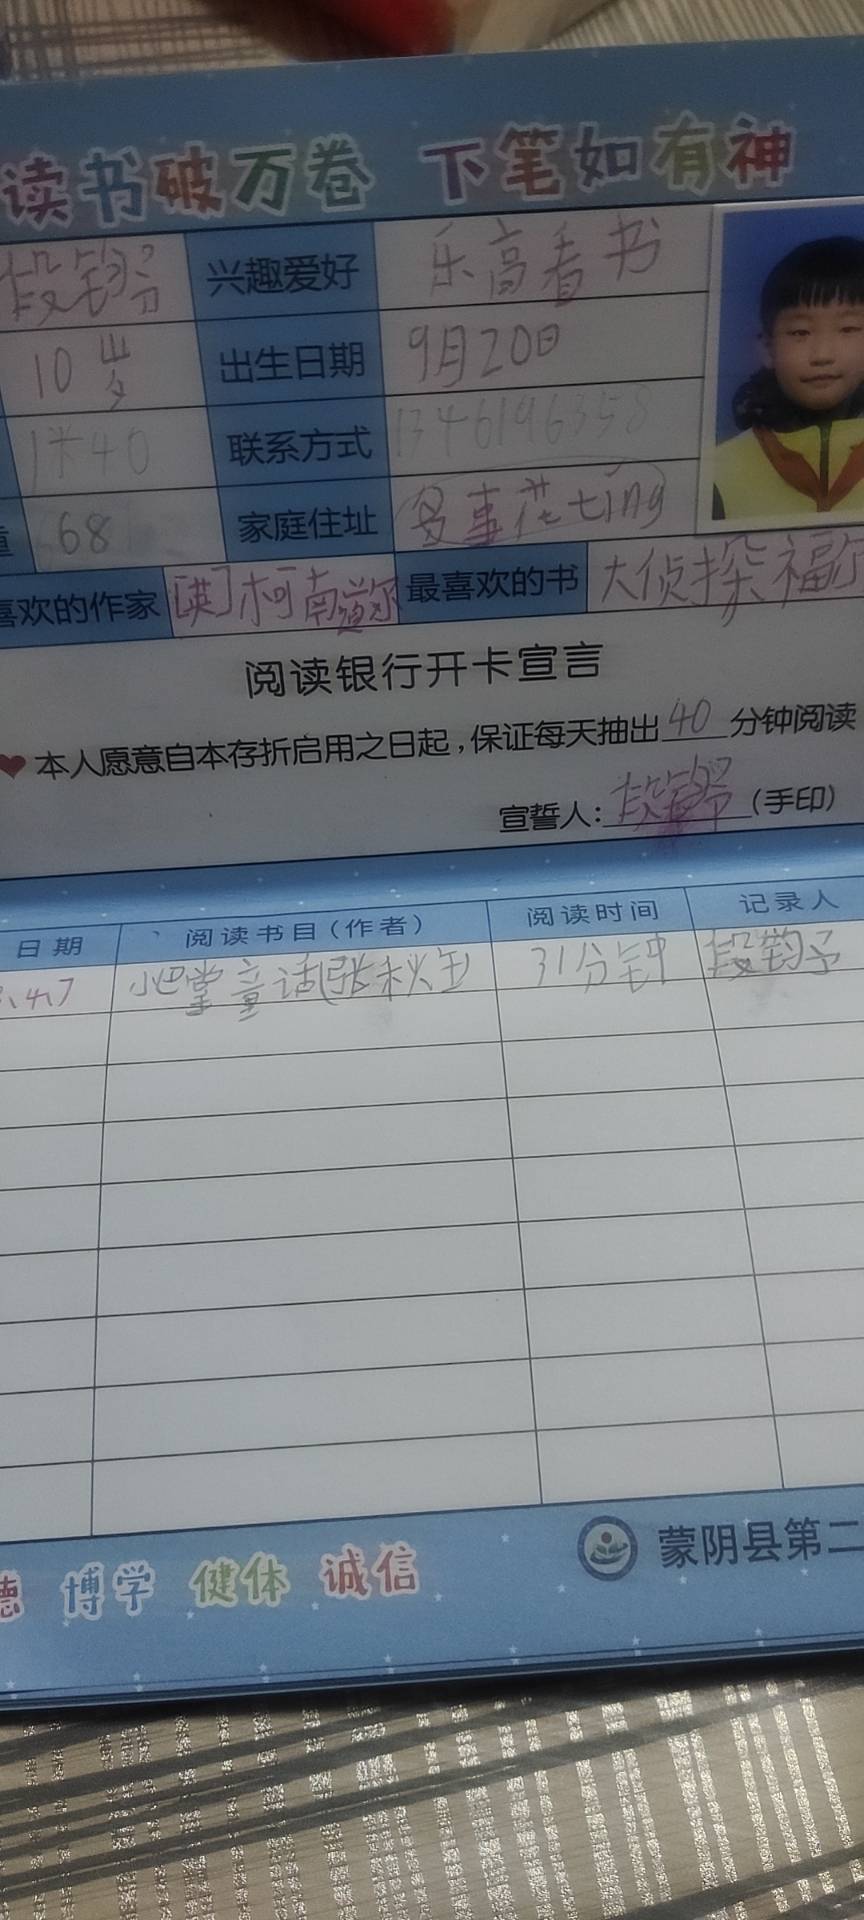 读书破万卷 下笔如有神
段钧 兴趣爱好 乐高看书
10岁 出生日期 9月20日
1米40 联系方式 1346196358
重 68 家庭住址 多事花ting
喜欢的作家 [英]柯南道尔 最喜欢的书 大侦探福尔
阅读银行开卡宣言
本人愿意自本存折启用之日起,保证每天抽出40分钟阅读
宣誓人: 段 (手印)
日期 阅读书目(作者) 阅读时间 记录人
4.7 小巴掌童话(张秋生 31分钟 段钧予
德 博学 健体 诚信
蒙阴县第二